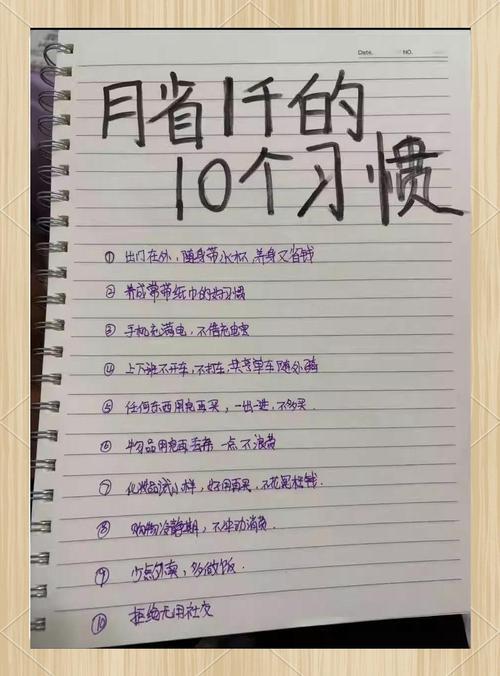 Date.    NO.
月省1千的
10个习惯
① 出门在外，随身带水杯，养身又省钱
② 养成带带纸巾的好习惯
③ 手机充满电，不借充电宝
④ 上下班不开车，不打车，共享单车随处骑
⑤ 任何东西用完再买，一出一进，不多买.
⑥ 物品用完再丢弃 一点不浪费
⑦ 化妆品试小样，好用再买，不花冤枉钱.
⑧ 购物冷静期，不冲动消费.
⑨ 少点外卖，多做饭.
⑩ 拒绝无用社交